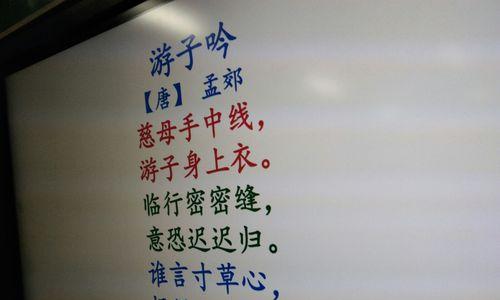 游子吟
【唐】 孟郊
慈母手中线，
游子身上衣。
临行密密缝，
意恐迟迟归。
谁言寸草心，